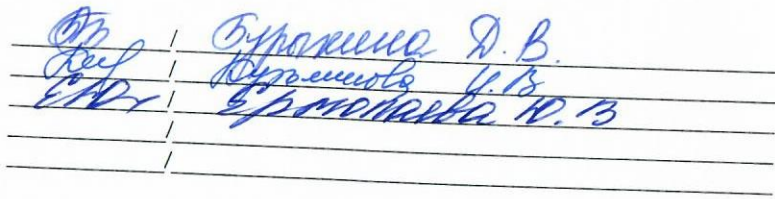 / Бурыкина Д. В.
/ Кузьминова И. В
/ Ермолаева Ю. В
/
/